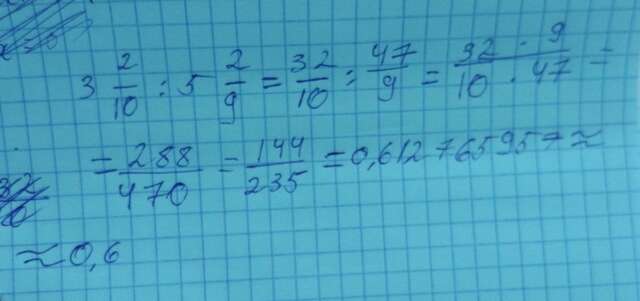 3 2/10 : 5 2/9 = 32/10 : 47/9 = 32 · 9 / 10 · 47 =
= 288/470 = 144/235 = 0,612765957 ≈
≈ 0,6